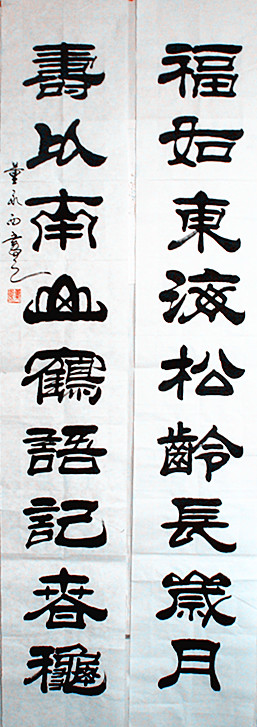 福如東海松齡長歲月
壽以南山鶴語記春龝
董永西書之